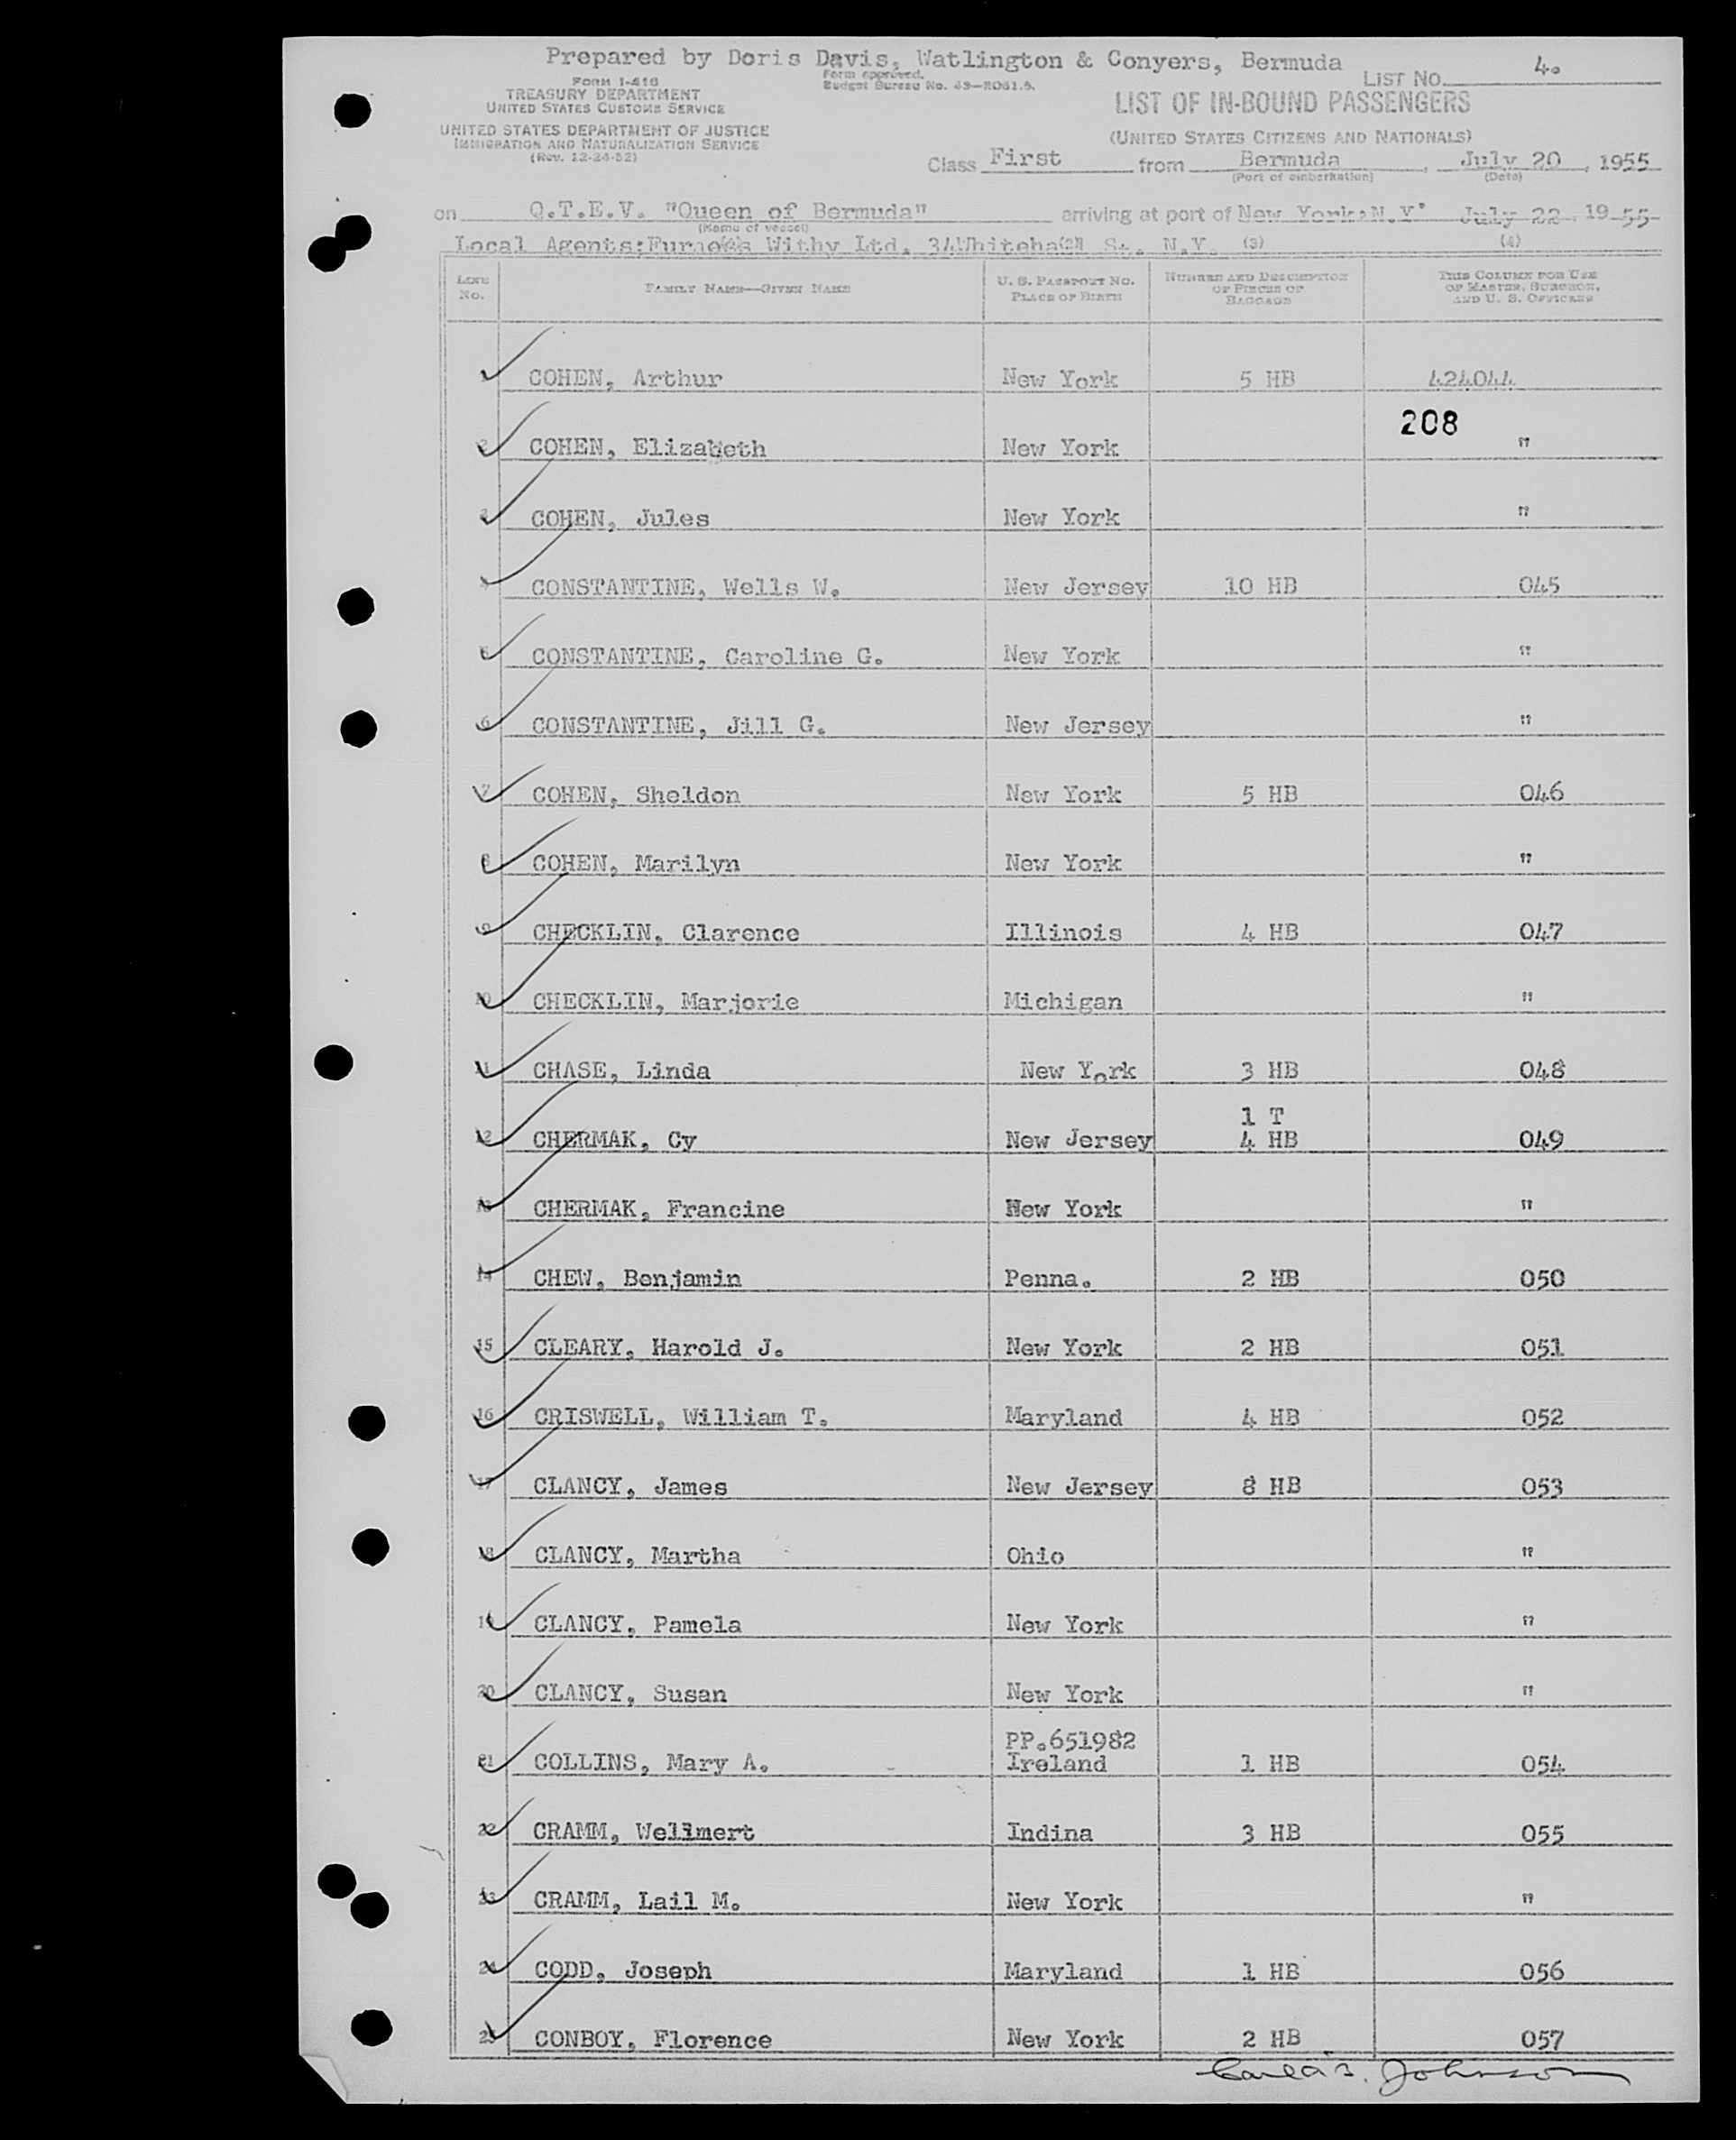 Prepared by Doris Davis, Watlington & Conyers, Bermuda
FORM I-416
TREASURY DEPARTMENT
UNITED STATES CUSTOMS SERVICE
UNITED STATES DEPARTMENT OF JUSTICE
IMMIGRATION AND NATURALIZATION SERVICE
(Rev. 12-24-52)
Form approved.
Budget Bureau No. 43—R061.5.
LIST NO. 4.
LIST OF IN-BOUND PASSENGERS
(UNITED STATES CITIZENS AND NATIONALS)
Class First from Bermuda, July 20, 1955
(Port of embarkation) (Date)
on Q.T.E.V. "Queen of Bermuda" arriving at port of New York, N.Y. July 22, 1955
(Name of vessel)
Local Agents: Furness Withy Ltd. 34 Whitehall St., N.Y. (3) (4)
LINE No. FAMILY NAME—GIVEN NAME U. S. PASSPORT NO. PLACE OF BIRTH NUMBER AND DESCRIPTION OF PIECES OF BAGGAGE THIS COLUMN FOR USE OF MASTER, SURGEON, AND U. S. OFFICERS
COHEN, Arthur New York 5 HB 424044
208
2 COHEN, Elizabeth New York "
3 COHEN, Jules New York "
CONSTANTINE, Wells W. New Jersey 10 HB 045
5 CONSTANTINE, Caroline G. New York "
6 CONSTANTINE, Jill G. New Jersey "
7 COHEN, Sheldon New York 5 HB 046
8 COHEN, Marilyn New York "
9 CHECKLIN, Clarence Illinois 4 HB 047
10 CHECKLIN, Marjorie Michigan "
11 CHASE, Linda New York 3 HB 048
1 T
12 CHERMAK, Cy New Jersey 4 HB 049
13 CHERMAK, Francine New York "
14 CHEW, Benjamin Penna. 2 HB 050
15 CLEARY, Harold J. New York 2 HB 051
16 CRISWELL, William T. Maryland 4 HB 052
17 CLANCY, James New Jersey 8 HB 053
18 CLANCY, Martha Ohio "
19 CLANCY, Pamela New York "
20 CLANCY, Susan New York "
PP.651982
21 COLLINS, Mary A. Ireland 1 HB 054
22 CRAMM, Wellmert Indina 3 HB 055
23 CRAMM, Lail M. New York "
24 CODD, Joseph Maryland 1 HB 056
25 CONBOY, Florence New York 2 HB 057
Johnson